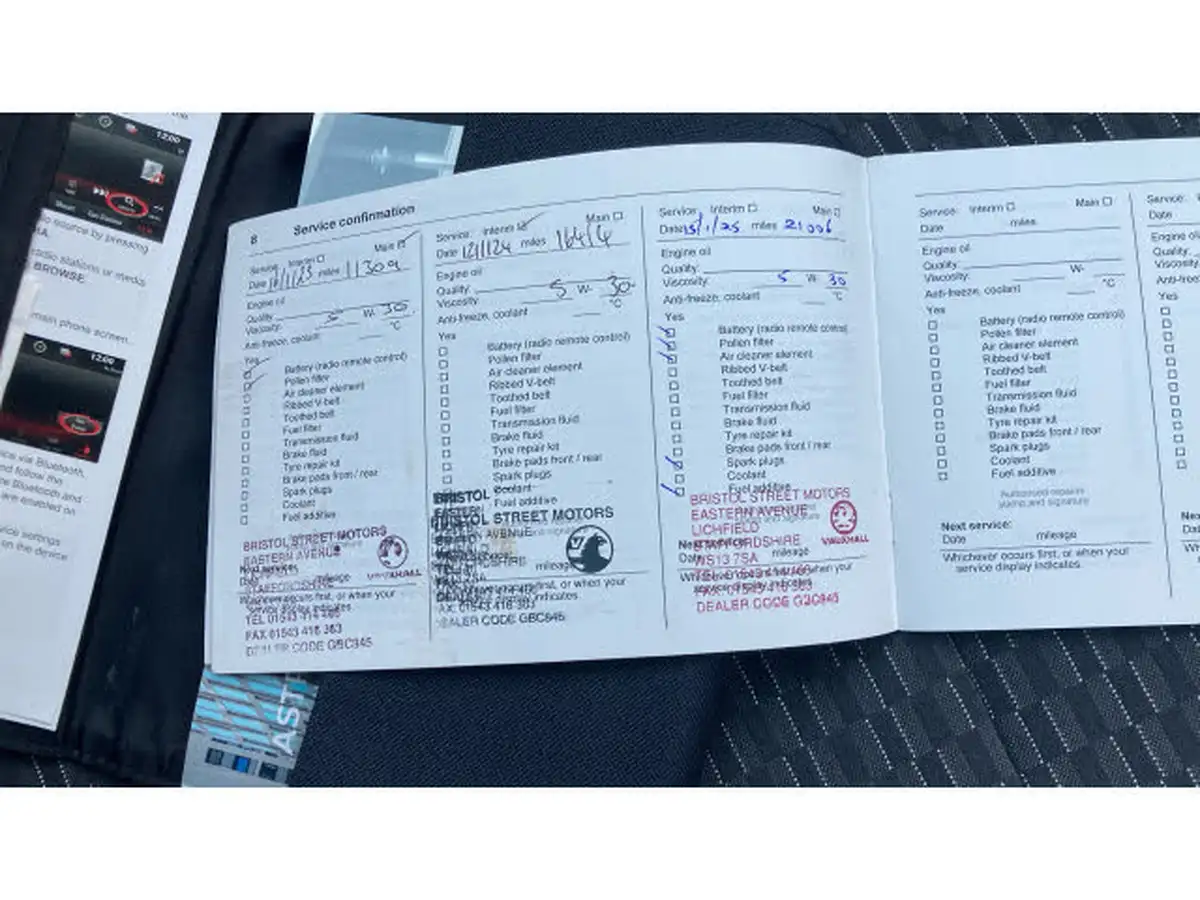 12:00
io source by pressing
radio stations or media
BROWSE.
main phone screen.
12:00
ice via Bluetooth,
nd follow the
e Bluetooth and
are enabled on
vice settings
on the device
ASTR
8 Service confirmation
Service: Interim Main
Date miles 11309
Engine oil
Quality:
Viscosity: 5 W- 30
Anti-freeze, coolant °C
Yes
Battery (radio remote control)
Pollen filter
Air cleaner element
Ribbed V-belt
Toothed belt
Fuel filter
Transmission fluid
Brake fluid
Tyre repair kit
Brake pads front / rear
Spark plugs
Coolant
Fuel additive
BRISTOL STREET MOTORS
EASTERN AVENUE
STAFFORDSHIRE
VAUXHALL
Next service:
Date mileage
Whichever occurs first, or when your
service display indicates.
TEL 01543 414 465
FAX 01543 416 363
DEALER CODE GBC945
Service: Interim Main
Date 12/1/24 miles 16414
Engine oil
Quality:
Viscosity: 5 W- 30
Anti-freeze, coolant °C
Yes
Battery (radio remote control)
Pollen filter
Air cleaner element
Ribbed V-belt
Toothed belt
Fuel filter
Transmission fluid
Brake fluid
Tyre repair kit
Brake pads front / rear
Spark plugs
Coolant
Fuel additive
BRISTOL
BRISTOL STREET MOTORS
EASTERN AVENUE
mileage
first, or when your
display indicates.
FAX 01543 416 363
DEALER CODE GBC945
Service: Interim Main
Date 15/1/25 miles 21006
Engine oil
Quality:
Viscosity: 5 W- 30
Anti-freeze, coolant °C
Yes
Battery (radio remote control)
Pollen filter
Air cleaner element
Ribbed V-belt
Toothed belt
Fuel filter
Transmission fluid
Brake fluid
Tyre repair kit
Brake pads front / rear
Spark plugs
Coolant
Fuel additive
BRISTOL STREET MOTORS
EASTERN AVENUE
LICHFIELD
STAFFORDSHIRE
WS13 7SA
VAUXHALL
Next service:
Date mileage
Whichever occurs first, or when your
service display indicates.
FAX 01543 416 363
DEALER CODE GBC945
Service: Interim Main
Date miles
Engine oil
Quality:
Viscosity: W-
Anti-freeze, coolant °C
Yes
Battery (radio remote control)
Pollen filter
Air cleaner element
Ribbed V-belt
Toothed belt
Fuel filter
Transmission fluid
Brake fluid
Tyre repair kit
Brake pads front / rear
Spark plugs
Coolant
Fuel additive
Authorised repairer
stamp and signature
Next service:
Date mileage
Whichever occurs first, or when your
service display indicates.
Service:
Date
Engine oil
Quality:
Viscosity:
Anti-freeze
Yes